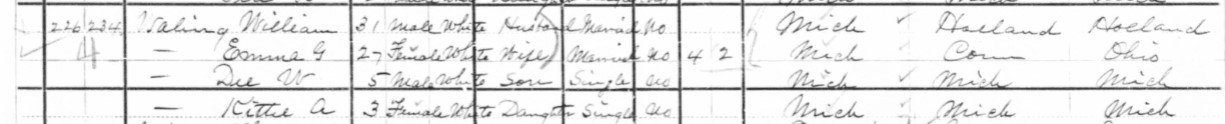 226 234 Valing William 31 Male White Husband Married No Mich Holland Holland
4 — Emma G 27 Female White Wife Married No 4 2 Mich Conn Ohio
— Dee W 5 Male White Son Single No Mich Mich Mich
— Kittie A 3 Female White Daughter Single No Mich Mich Mich